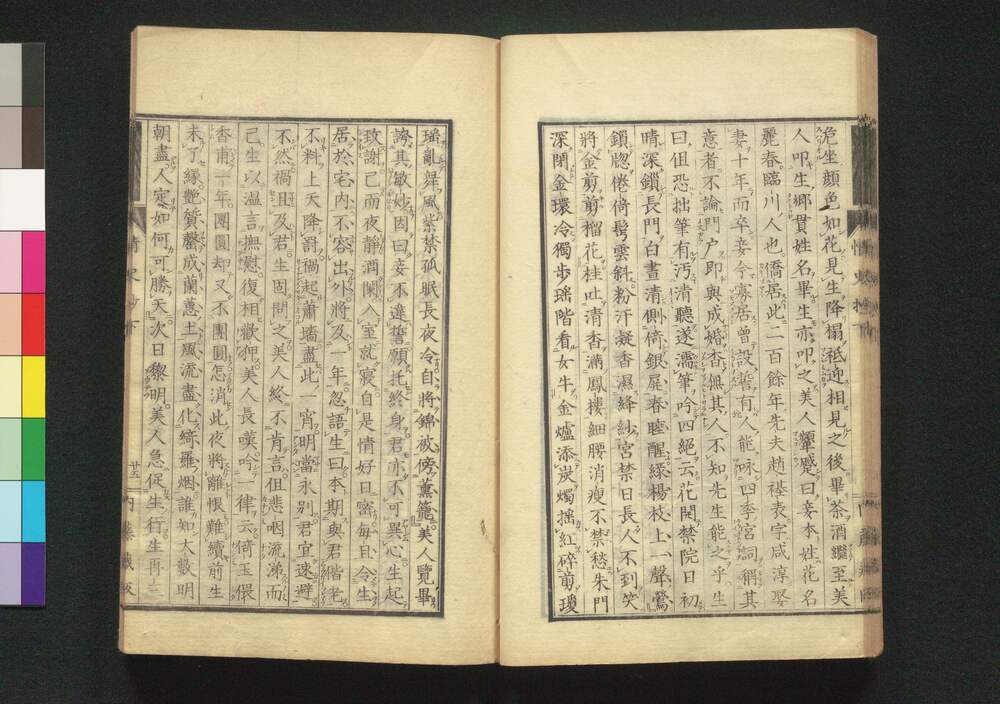 生顔色如花見生降榻祗迎相見之後畢茶酒繼至美
人叩生郷貫姓名畢生亦叩之美人顰蹙曰妾本姓花名
麗春臨川人也僑居此二百餘年先夫趙禥表字咸淳娶
妻十年而卒妾今寡居曽設誓有人能咏四季宮詞稱其
意者不論門户即與成婚杳無其人不知先生能之乎生
曰但恐拙筆有汚清聽遂濡筆吟四絕云花開禁院日初
晴深鎖長門白晝清側倚銀屏春睡醒綠楊枝上一聲鶯
鎖牕倦倚鬓雲斜粉汗凝香濕絳紗宮禁日長人不到笑
將金剪剪榴花桂吐清香滿鳳樓細腰消瘦不禁愁朱門
深閉金環冷獨歩瑶階看女牛金爐添炭燭揺紅碎剪瓊
瑶亂舞風紫禁孤眠長夜冷自將錦被傍薰籠美人覽畢
誇其敏妙因曰妾不違誓願托終身君亦不可異心生起
致謝已而夜静潤闌入室就寢自是情好日密毎日令生
居於宅内不容出外將及一年忽語生曰本期與君偕老
不料上天降罰禍起蕭墻盡此一宵明當永別君宜速避
不然禍且及君生固問之美人終不肯言但悲咽流涕而
已生以温言撫慰復相歡狎美人長嘆吟一律云倚玉偎
香甫一年團圓却又不團圓怎消此夜將離恨難續前生
未了緣艷質罄成蘭蕙土風流盡化綺羅烟誰知大數明
朝盡人定如何可勝天次日黎明美人急促生行生再三
情史抄下
廿五